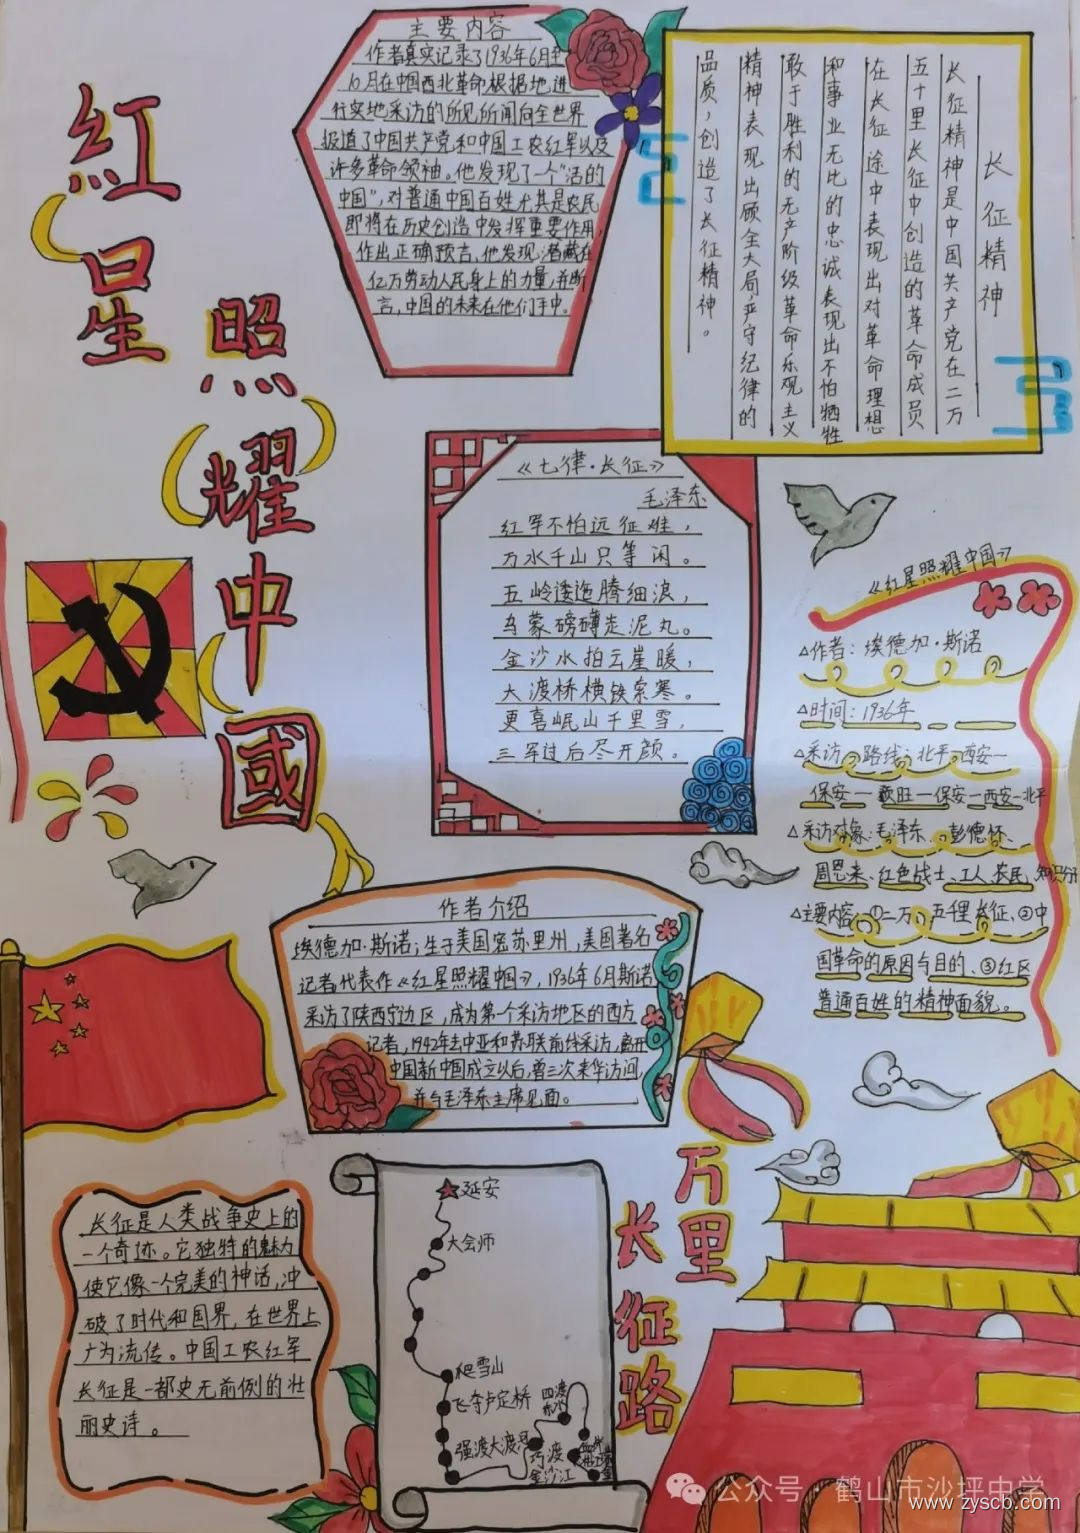 紅星
照耀中國
主要内容
作者真实记录了1936年6月至
10月在中国西北革命根据地进
行实地采访的所见所闻向全世界
报道了中国共产党和中国工农红军以及
许多革命领袖。他发现了一个“活的
中国”，对普通中国百姓尤其是农民
即将在历史创造中发挥重要作用，
作出正确预言，他发现潜藏在
亿万劳动人民身上的力量，并断
言，中国的未来在他们手中。
长征精神
长征精神是中国共产党在二万
五千里长征中创造的革命成员
在长征途中表现出对革命理想
和事业无比的忠诚表现出不怕牺牲
敢于胜利的无产阶级革命乐观主义
精神表现出顾全大局，严守纪律的
品质，创造了长征精神。
《七律·长征》
毛泽东
红军不怕远征难，
万水千山只等闲。
五岭逶迤腾细浪，
乌蒙磅礴走泥丸。
金沙水拍云崖暖，
大渡桥横铁索寒。
更喜岷山千里雪，
三军过后尽开颜。
《红星照耀中国》
作者：埃德加·斯诺
时间：1936年
采访路线：北平—西安—
保安— —保安—西安—北平
采访对象：毛泽东、彭德怀、
周恩来、红色战士、工人、农民、知识分
主要内容：①二万五千里长征、②中
国革命的原因与目的、③红区
普通百姓的精神面貌。
作者介绍
埃德加·斯诺；生于美国密苏里州，美国著名
记者代表作《红星照耀中国》，1936年6月斯诺
采访了陕西宁边区，成为第一个采访地区的西方
记者，1942年去中亚和苏联前线采访，离开
中国新中国成立以后，曾三次来华访问，
并与毛泽东主席见面。
长征是人类战争史上的
一个奇迹。它独特的魅力
使它像一个完美的神话，冲
破了时代和国界，在世界上
广为流传。中国工农红军
长征是一部史无前例的壮
丽史诗。
万里
长征路
延安
大会师
爬雪山
飞夺泸定桥
强渡大渡河
巧渡
金沙江
四渡
赤水
公众号 · 鹤山市沙坪中学
www.zyscb.com